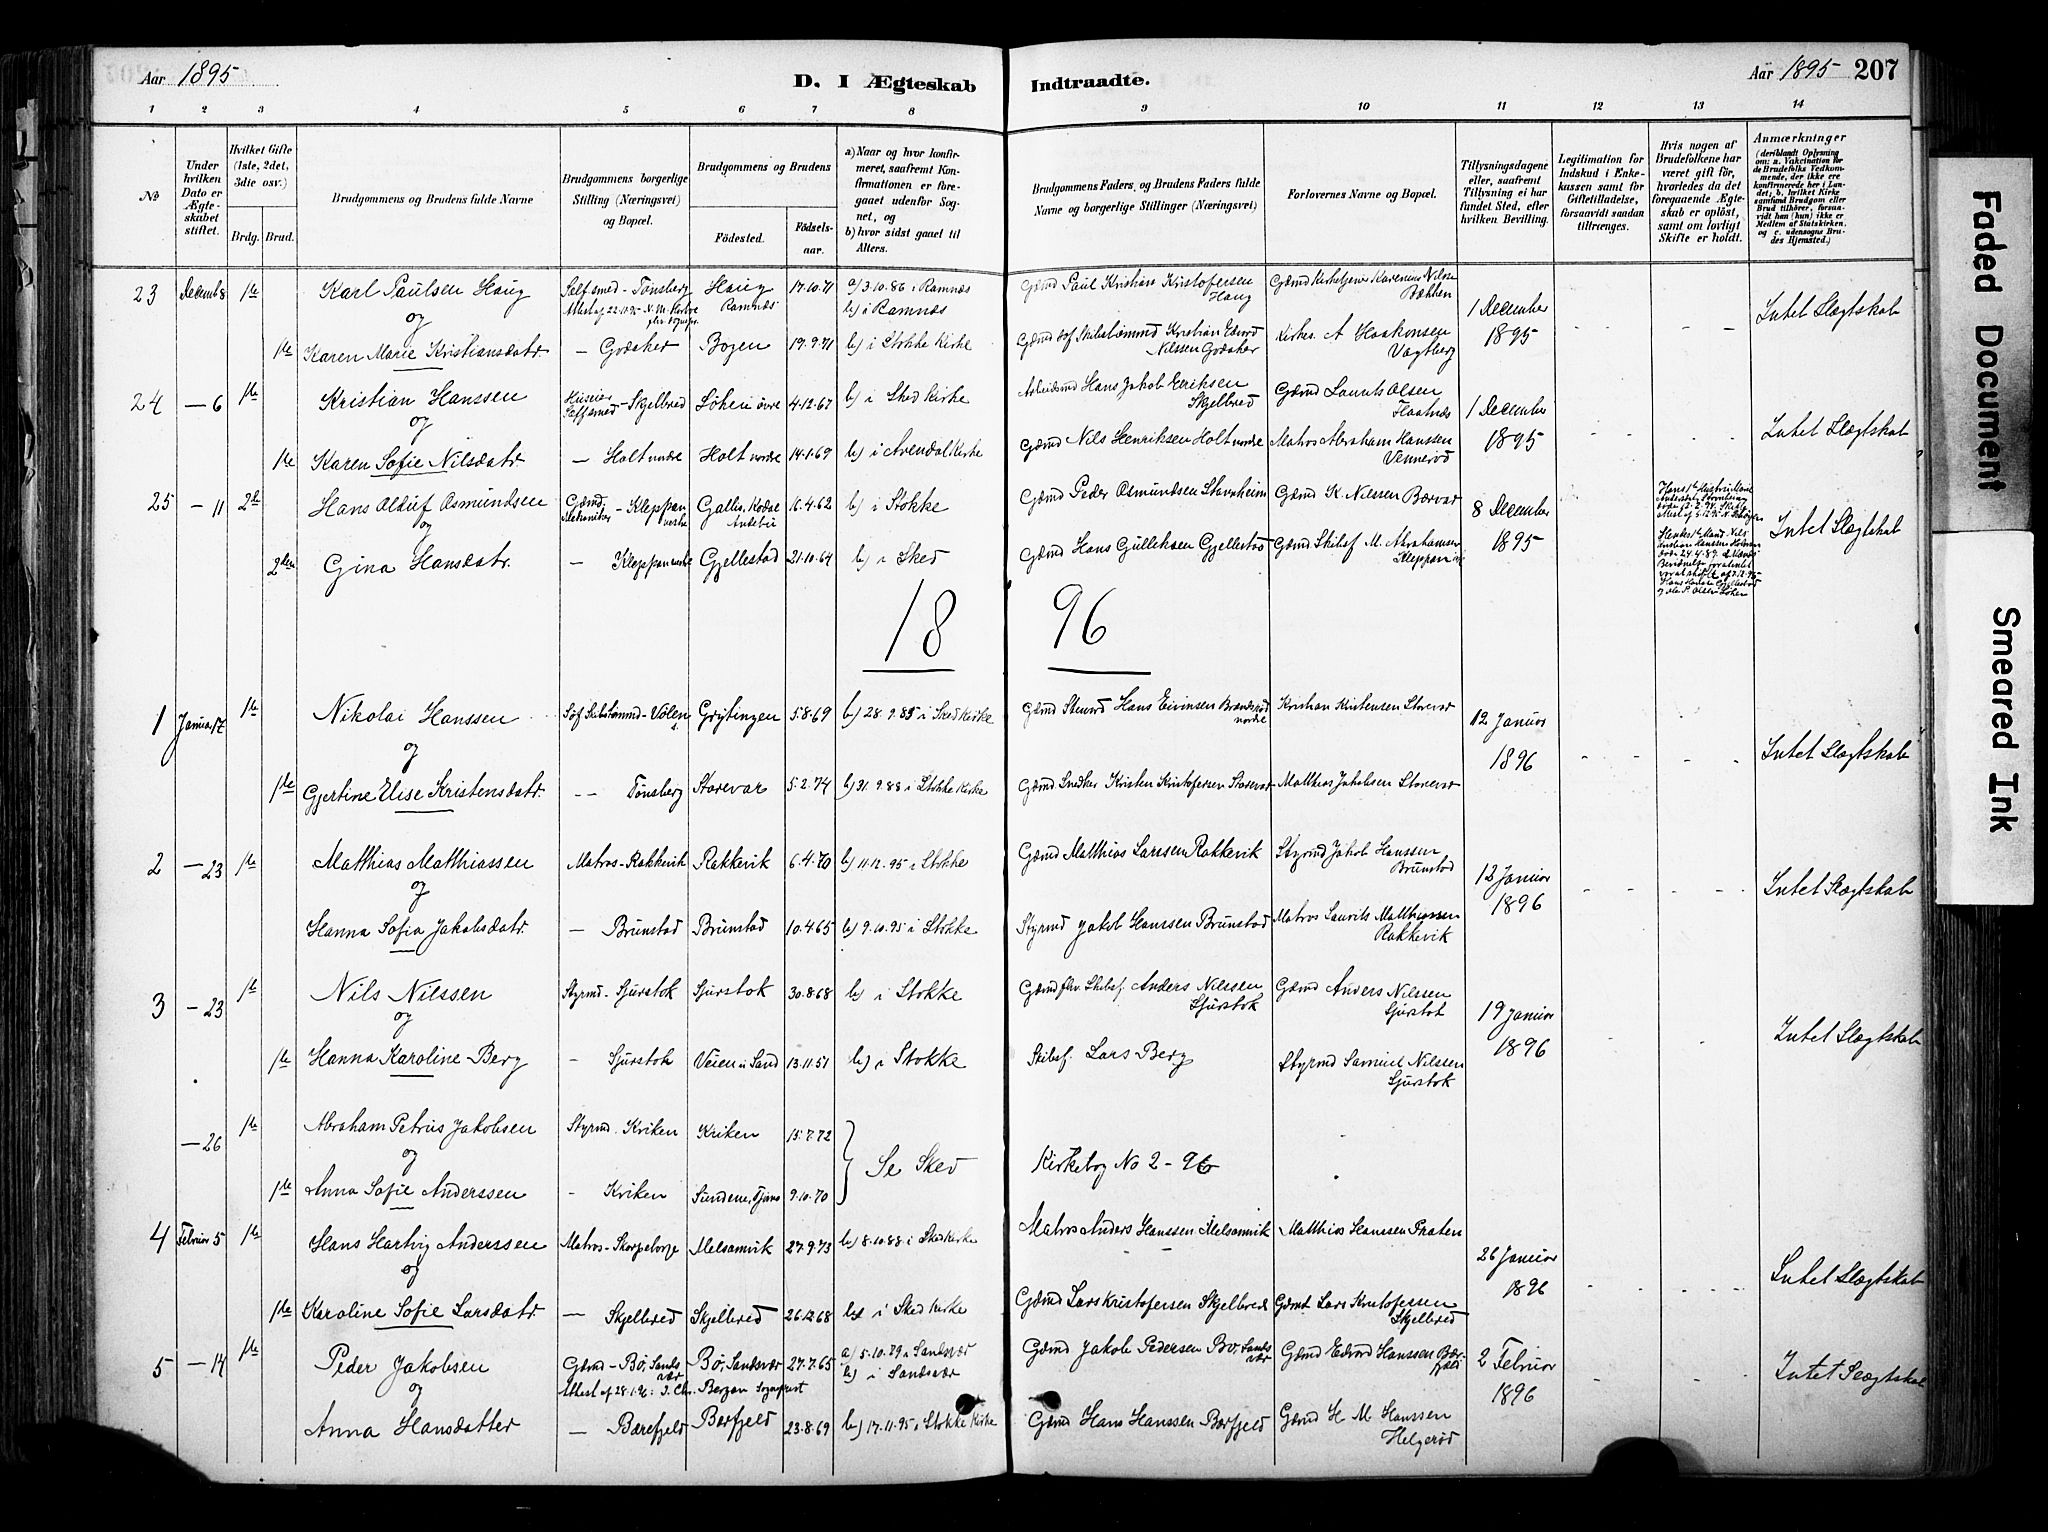 Aar 1895
D. I Ægteskab Indtraadte.
Aar 1895 207
1 2 3 4 5 6 7 8 9 10 11 12 13 14
No
Under hvilken Dato er Ægteskabet stiftet.
Hvilket Gifte (1ste, 2det, 3die osv.)
Brdg. Brud.
Brudgommens og Brudens fulde Navne
Brudgommens borgerlige Stilling (Næringsvei) og Bopæl.
Brudgommens og Brudens
Fødested. Fødselsaar.
a) Naar og hvor konfirmeret, saafremt Konfirmationen er foregaaet udenfor Sognet, og
b) hvor sidst gaaet til Alters.
Brudgommens Faders, og Brudens Faders fulde Navne og borgerlige Stillinger (Næringsvei)
Forlovernes Navne og Bopæl.
Tillysningsdagene eller, saafremt Tillysning ei har fundet Sted, efter hvilken Bevilling.
Legitimation for Indskud i Enkekassen samt for Giftetilladelse, forsaavidt saadan tiltrænges.
Hvis nogen af Brudefolkene har været gift før, hvorledes da det foregaaende Ægteskab er opløst, samt om lovligt Skifte er holdt.
Anmærkninger
(deriblandt Oplysning om: a. Vakcination for de Brudefolks Vedkommende, der ikke ere konfirmerede her i Landet; b. hvilket Kirkesamfund Brudgom eller Brud tilhører, forsaavidt han (hun) ikke er Medlem af Statskirken, og c. udensogns Brudes Hjemsted.)
23 Decemb 8 1ste Karl Paulsen Haug Selfsmed - Tønsberg Haug Ramnæs 17.10.71 a) 3.10.86 i Ramnæs b) i Ramnæs Gårmd Paul Kristian Kristofersen Haug Gårmd Kirketjener Karenius Nilsen Bakken 1 December 1895 Intet Slægtskab
og
1ste Karen Marie Kristiansdatr - Godaker Bogen 19.9.71 b) i Stokke Kirke Kristian Edvard Nilssen Godaker Kirkes. A Haakonsen Vagtberg
24 - 6 1ste Kristian Hanssen - Skjelbred Løhen øvre 4.12.67 b) i Sked Kirke Arbeidsmd Hans Jakob Eriksen Skjelbred Gårmd Laurits Olsen Flaatnæs 1 December 1895 Intet Slægtskab
og
1ste Karen Sofie Nilsdatr - Holt nordre Holt nordre 14.1.69 b) i Arendal Kirke Gårmd Nils Henriksen Holt nordre Matros Abraham Hanssen Vennerød
25 - 11 2de Hans Oluf Osmundsen Kleppan 16.4.62 b) i Stokke Gårmd Peder Osmundsen Stavnheim Gårmd K. Nilssen Bærvar 8 December 1895 Intet Slægtskab
og
2den Gina Hansdatr. - Kleppan nordre Gjellestad 21.10.64 b) i Sked Gårmd Hans Gulliksen Gjellestad Gårmd Skibsf M. Abrahamsen Kleppan
18 96
1 Januar 17 1ste Nikolai Hanssen - Volen Grytingen 5.8.69 b) 28.9.85 i Sked Kirke Kristian Kristensen Storevar 12 Januar 1896 Intet Slægtskab
og
1ste Gjertine Elise Kristensdatr. - - Tønsberg Storevar 5.2.74 b) 31.9.88 i Stokke Kirke Gårmd Snedker Kristen Kristofersen Storevar Matthias Jakobsen Storevar
2 - 23 1ste Matthias Matthiassen Matros - Rakkevik Rakkevik 6.4.70 b) 11.12.95 i Stokke Gårmd Matthias Larssen Rakkevik Styrmd Jakob Hanssen Brunstad 12 Januar 1896 Intet Slægtskab
og
Hanna Sofia Jakobsdatr. - Brunstad Brunstad 10.4.65 b) 9.10.95 i Stokke Styrmd Jakob Hanssen Brunstad Matros Laurits Matthiassen Rakkevik
3 - 23 1ste Nils Nilssen Styrmd - Sjurstok Sjurstok 30.8.68 b) i Stokke Gårmd fhv. Skibsf. Anders Nilssen Sjurstok Gårmd Anders Nilssen Sjurstok 19 Januar 1896 Intet Slægtskab
og
1ste Hanna Karoline Berg - Sjurstok Veien i Sand 13.11.51 b) i Stokke Skibsf. Lars Berg Styrmd Samuel Nilssen Sjurstok
- 26 1ste Abraham Petrus Jakobsen Styrmd. Kriken Kriken 15.7.72
og Se Sked Kirkebog No 2 - 96
1ste Anna Sofie Anderssen - Kriken Sundene, Tjømø 9.10.70
4 Februar 5 1ste Hans Hartvig Anderssen Matros - Skorgeborge Melsomvik 27.9.73 b) 8.10.88 i Sked Kirke Matros Anders Hanssen Melsomvik Matthias Hanssen Praten 26 Januar 1896 Intet Slægtskab
og
1ste Karoline Sofie Larsdatr - Skjelbred Skjelbred 26.12.68 b) i Sked Kirke Gårmd Lars Kristofersen Skjelbred Gårmd Lars Kristofersen Skjelbred
5 - 14 1ste Peder Jakobsen Gårmd - Bø, Sandsvær Bø, Sandsvær 27.7.65 a) 5.10.79 i Sandsvær b) i Sandsvær Gårmd Jakob Pedersen Bø, Sandsvær Gårmd Edvard Hanssen Bærfjeld 2 Februar 1896 Intet Slægtskab
og Attest af 28.1.96: J. Chr. Berzan Sogneprest
Anna Hansdatter - Bærefjeld Bærfjeld 23.8.69 b) 17.11.95 i Stokke Kirke Gårmd Hans Hanssen Bærfjeld Gårmd H M Hanssen Helgerød
Faded Document
Smeared Ink